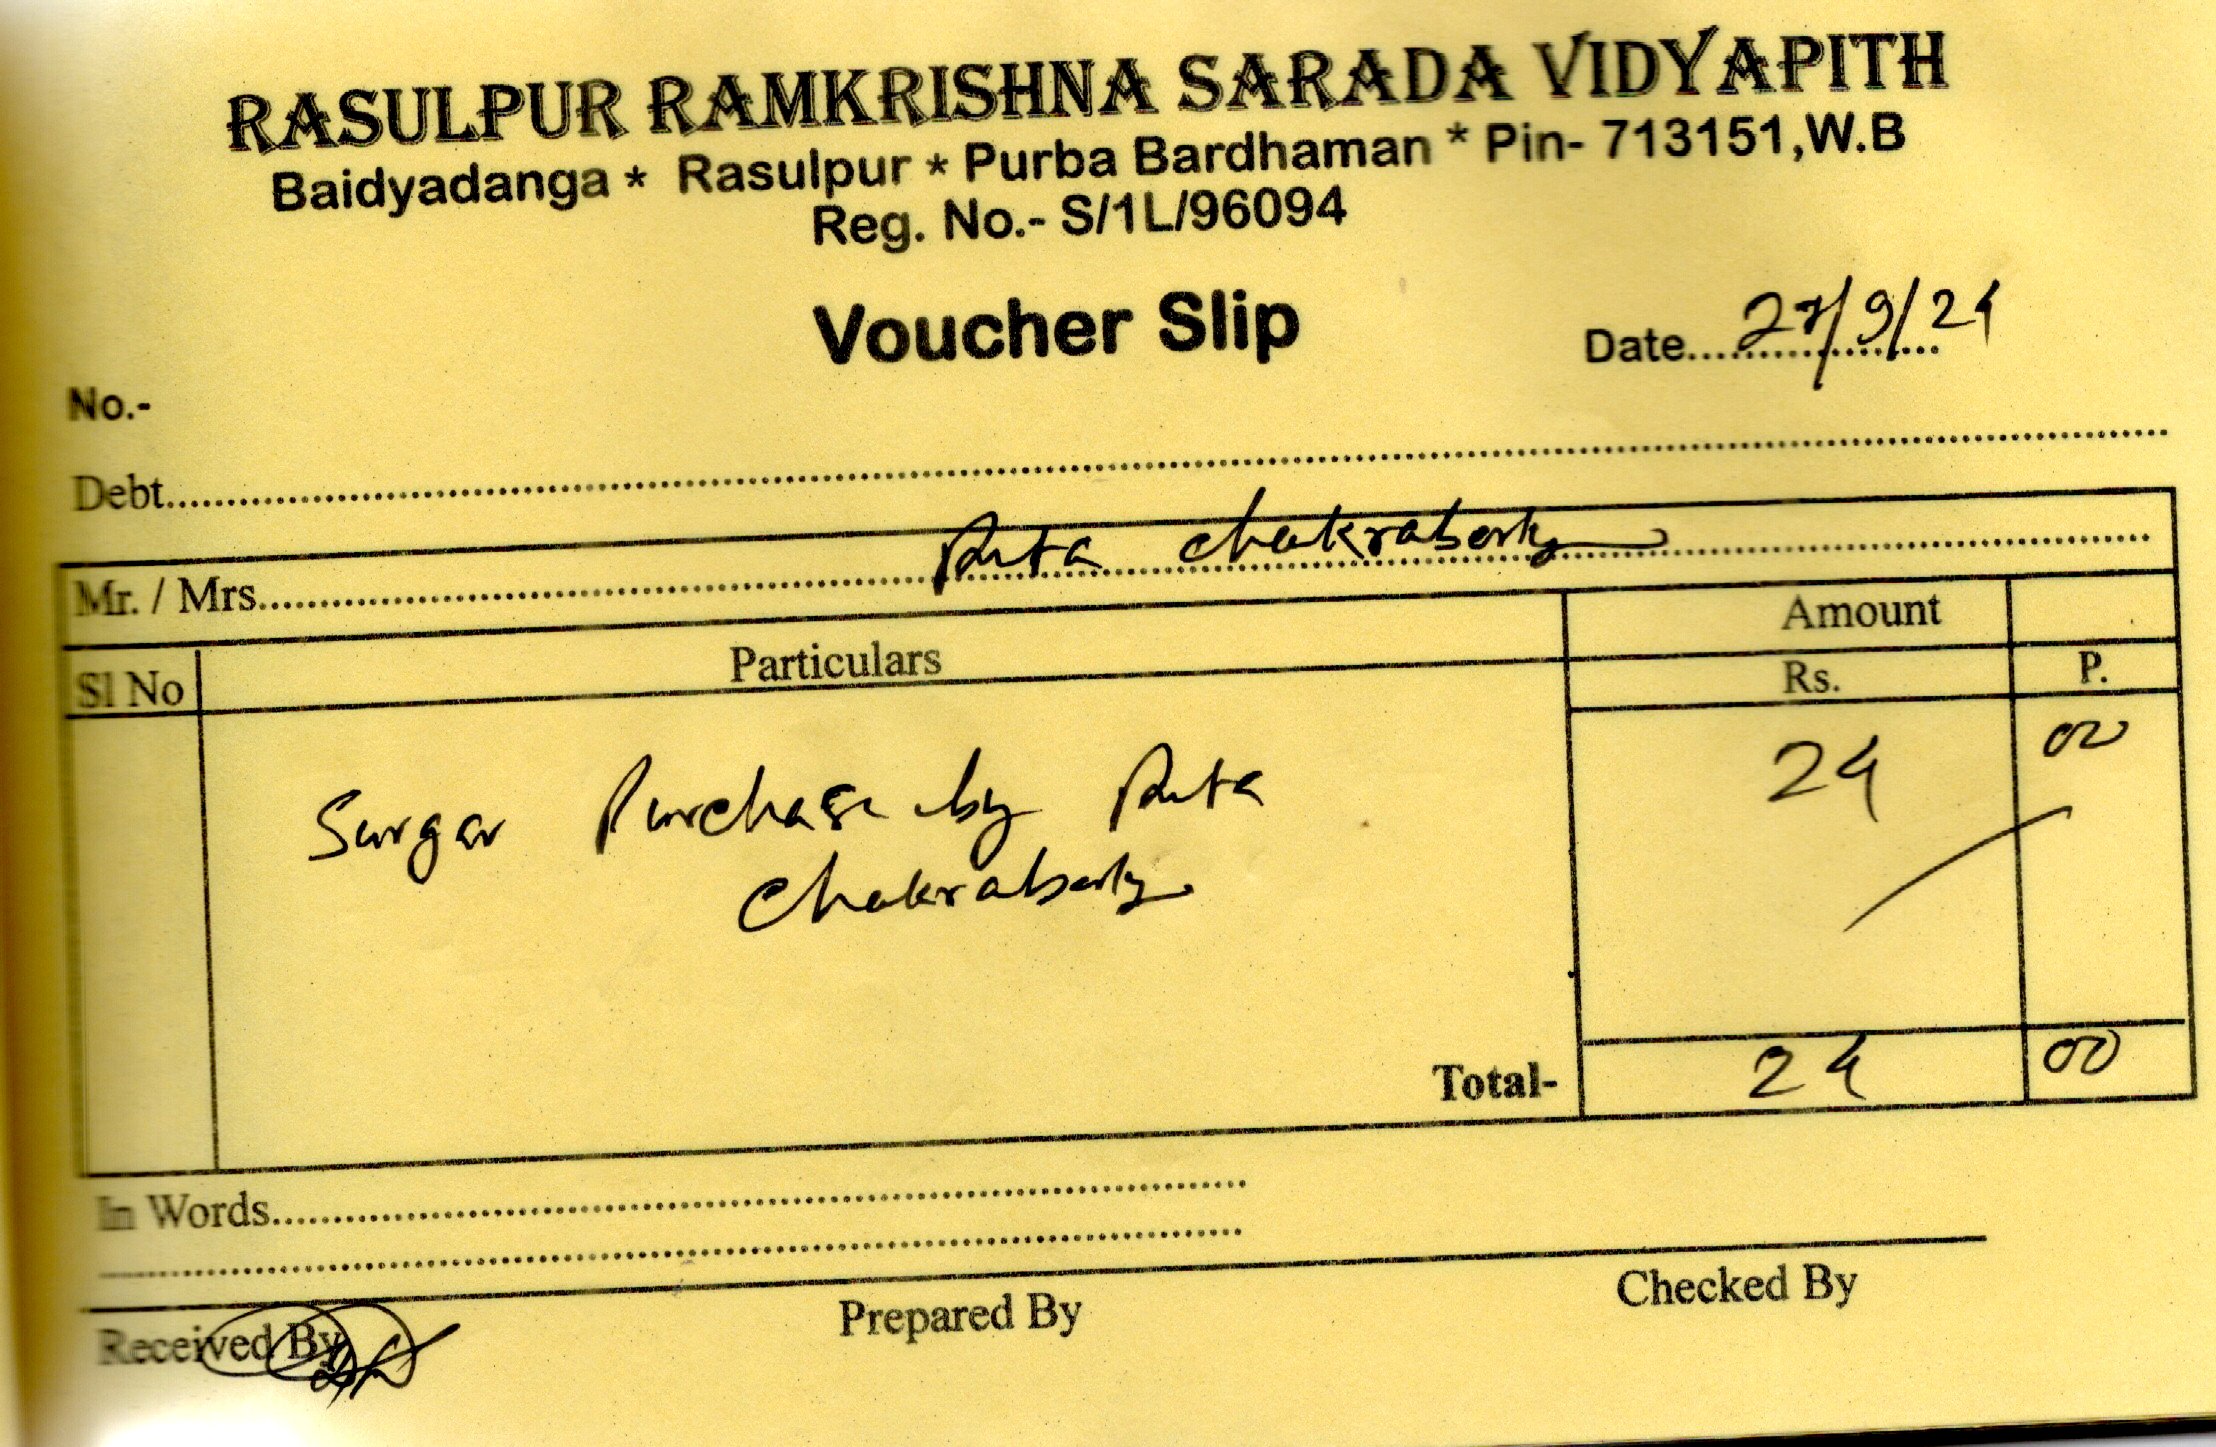 RASULPUR RAMKRISHNA SARADA VIDYAPITH
Baidyadanga * Rasulpur * Purba Bardhaman * Pin- 713151,W.B
Reg. No.- S/1L/96094
Voucher Slip
Date.................. 27/9/24
No.-
Debt......................................................
Mr. / Mrs............ Rita Chakraborty ............
Sl No Particulars Amount
Rs. P.
Surgar Purchase by Rita 24 00
Chakraborty
Total- 24 00
In Words......................................................
......................................................
Received By Prepared By Checked By